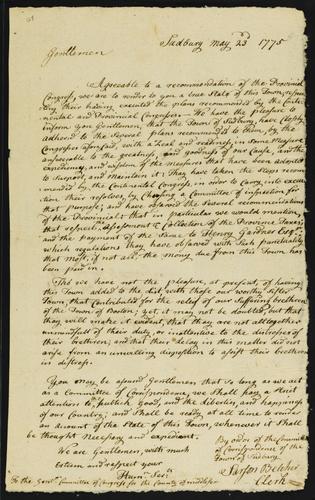 Sudbury May 23d 1775
Gentlemen
Agreeable to a recommendation of the Provincial
Congress, we are to render to you a true State of this Town, respec
ting their having executed the plans recommended by the Conti-
nental and Provincial Congresses. We have the pleasure to
inform you Gentlemen, that the Town of Sudbury, have Closely
adhered to the Several plans recommended to them, by the
Congresses aforesaid, with a Zeal and readiness, in Some Measure
answerable to the greatness, and goodness of our Cause, and the
expediency, and wisdom of the measures that have been adopted
to Support, and Maintain it: They have taken the Steps recom-
mended by the Continental Congress, in order to Carry into execu
tion their resolves, by Chusing a Committee of inspection for
that Purpose; and have observed the Several recommendations
of the Provincial: that in particular we would mention,
that respect Assessment & Collection of the Province Taxes,
and the payment of the Same to Henry Gardner Esqr.
which regulations they have observed with Such punctuality
that most, if not all the money due from this Town, has
been paid in.
Tho we have not the pleasure, at present, of having
this Town added to the list, with those our worthy Sister
Towns, that Contributed for the relief of our Suffering brethren
of the Town of Boston; yet it may not be doubted, but that
they will make it evident, that they are not alltogether
unmindfull of their duty, or inattentive to the distresses of
their Brethren; and that their delay in this matter did not
arise from an unwilling disposition to assist their brethren
in distress.
You may be assured Gentlemen that so long as we act
as a Committee of Correspondence, we Shall pay a Strict
attention to publick Good, and the Liberties, and happiness
of our Country; and Shall be ready at all times to render
an Account of the State of this Town, whenever it Shall
be thought Necessary and expedient.
By order of the Committee
We are Gentlemen, with much
of Correspondence for the
Esteem and respect your
Town of Sudbury
Hum
Belcher
Clerk
To the Gentn Committee of Congress for the County of Middlesex